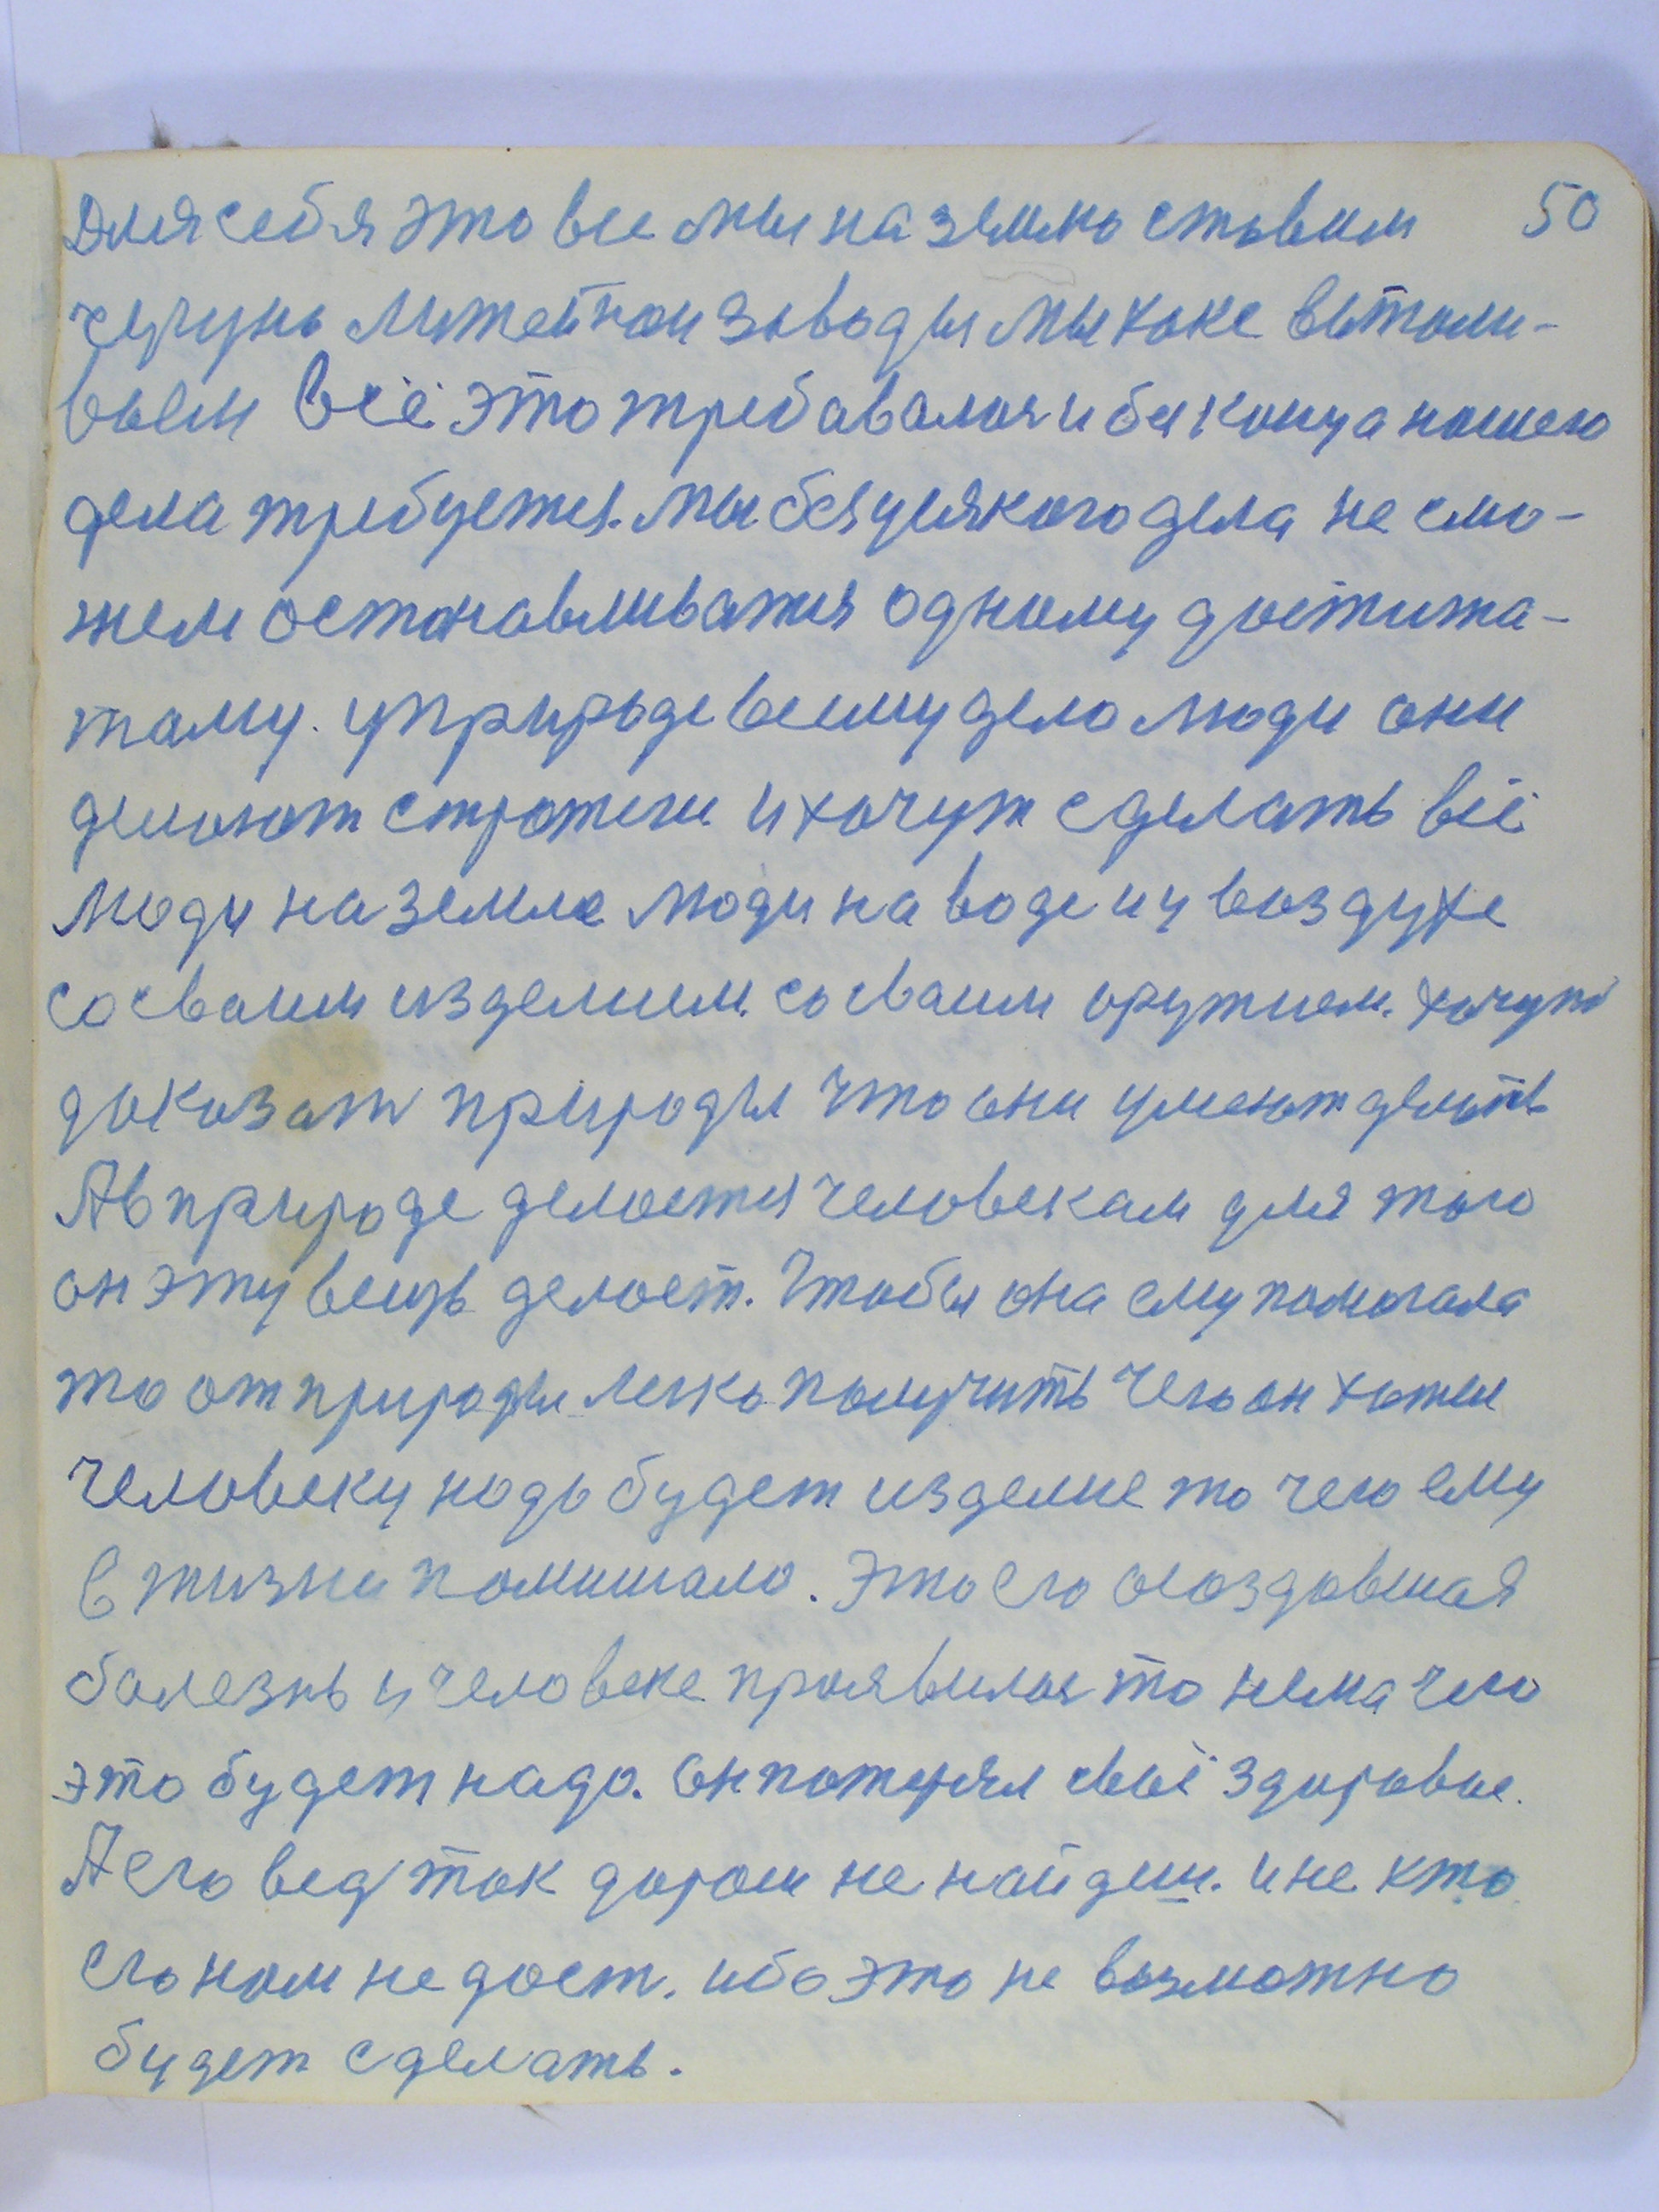 для себя это все мы на землю ставим 50
чегунь литейнои заводы мы тоже вытали-
ваем всё это требавалося и без конца нашего
дела требуется. мы без усякого дела не смо-
жем останавливатся одному достижа-
таму. у природе всему дело люди они
делоют стротеги и хочут сделать всё
люди на земле люди на воде и у воздухе
со сваим изделием. со сваим оружием. хочут
доказат природы что они умеют делоть
А в природе делоется человекам для того
он эту вещь делоет. Чтобы она ему помогала
то от природы легко получить чего он хотел
человеку надо будет изделие то чего ему
в жизни помишало. Это его осоздавшая
болезнь у человеке проявилося то нема чего
это будет надо. Он потерял своё здоровье.
А его вед так даром не найдеш. и не кто
его нам не дост. ибо это не возможно
будет сделать.